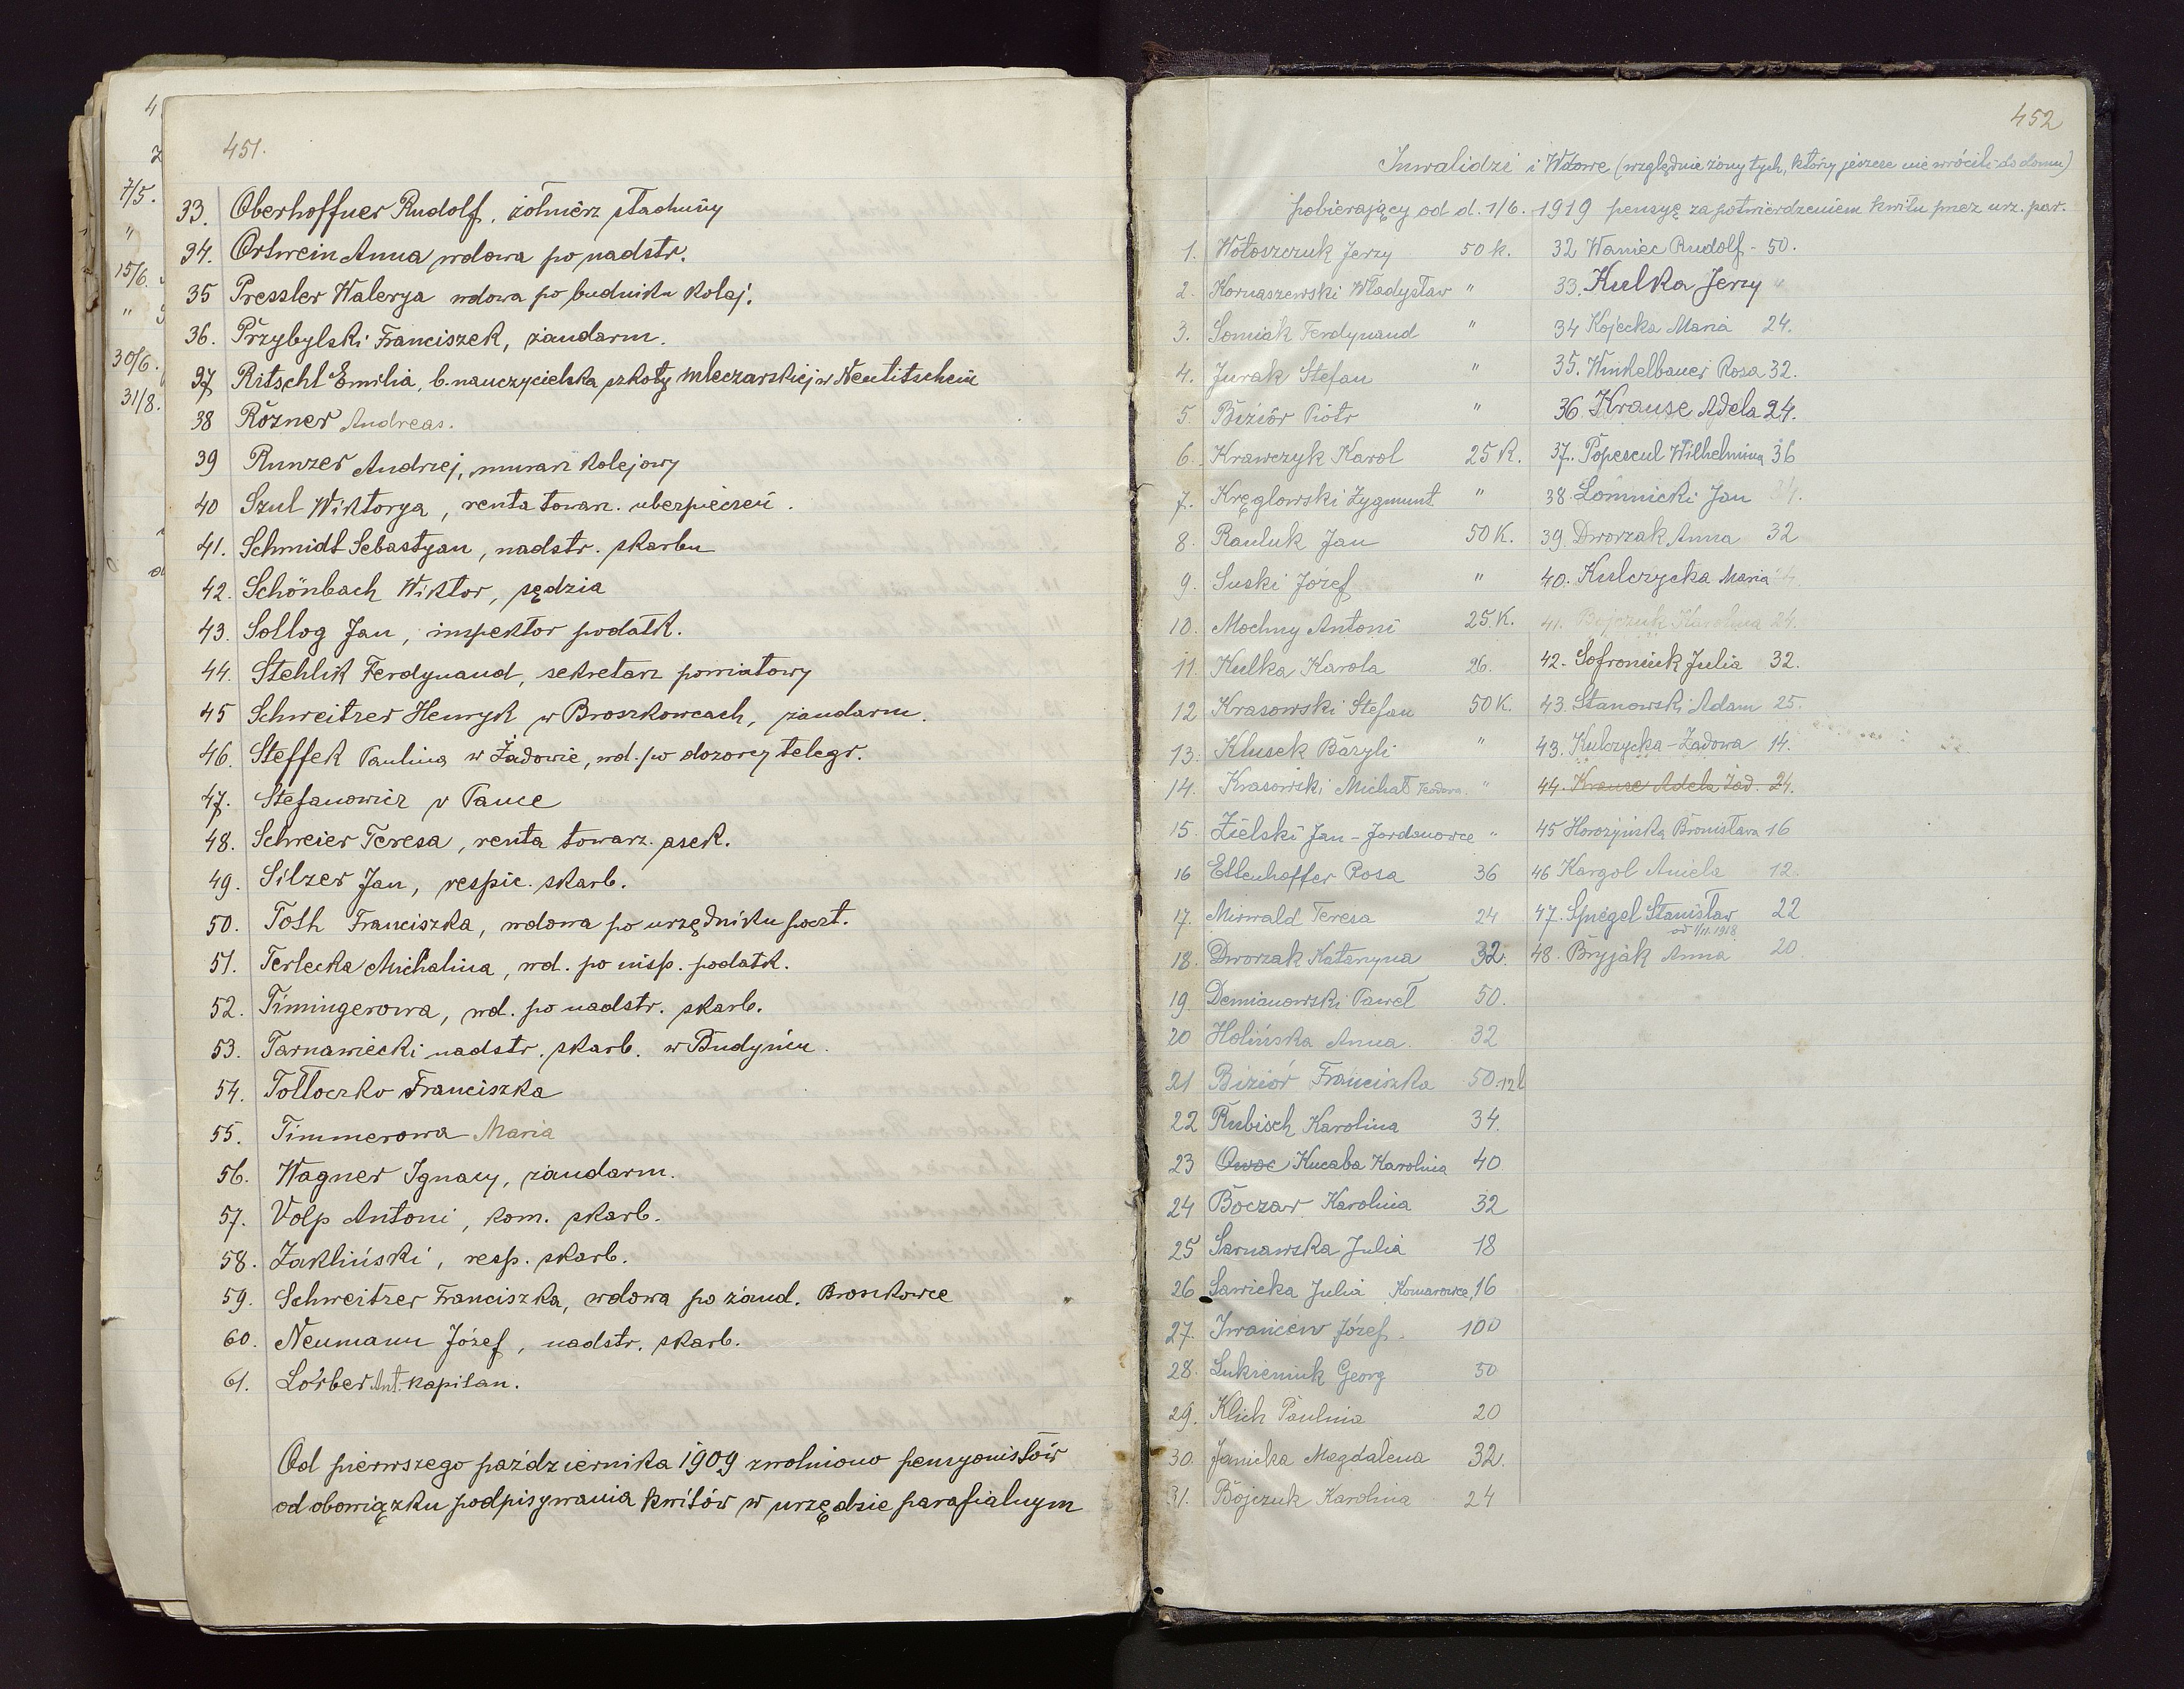 451.
33. Oberhoffner Rudolf, żołnierz
34. Ortwein Anna wdowa po nadstr.
35 Pressler Walerya wdowa po budniku kolej.
36. Przybylski Franciszek, żandarm.
37 Ritschl Emilia, b. nauczycielka szkoły mleczarskiej w Neutitschein
38 Rozner Andreas.
39 Runzer Andrzej, murarz kolejowy
40 Szul Wiktorya, renta towarz. ubezpieczeń.
41. Schmidt Sebastyan, nadstr. skarbu
42. Schönbach Wiktor, sędzia
43. Sollog Jan, inspektor podatk.
44. Stehlik Ferdynand, sekretarz powiatowy
45 Schweitzer Henryk w Broszkowcach, żandarm.
46. Steffek Paulina w Żadowie, wd. po dozorcy telegr.
47. Stefanowicz v Pance
48. Schreier Teresa, renta towarz. asek.
49. Silzer Jan, respic. skarb.
50. Toth Franciszka, wdowa po urzędniku poczt.
51. Terlecka Michalina, wd. po insp. podatk.
52. Timingerowa, wd. po nadstr. skarb.
53. Tarnawiecki nadstr. skarb. w Budyńcu.
54. Tołłoczko Franciszka
55. Timmerowa Maria
56. Wagner Ignacy, żandarm.
57. Volp Antoni, kom. skarb.
58. Żakliński, resp. skarb.
59. Schweitzer Franciszka, wdowa po żand. Broszkowce
60. Neumann Józef, nadstr. skarb.
61. Lörber Ant. kapitan.
Od pierwszego października 1909 zwolniono pensyonistów
od obowiązku podpisywania kwitów w urzędzie parafialnym
7/5.
"
15/6.
"
30/6.
31/8.
452
Inwalidzi i Wdowe (względnie żony tych, którzy jeszcze nie wrócili do domu)
pobierający od d. 1/6. 1919 pensyę za potwierdzeniem kwitu przez urz. par.
1. Wołoszczuk Jerzy 50 K.
2. Kornaszewski Władysław "
3. Somiak Ferdynand "
4. Jurak Stefan "
5. Bizior Piotr "
6. Krawczyk Karol 25 K.
7. Kręglowski Zygmunt "
8. Rauluk Jan 50 K.
9. Suski Józef "
10. Mochny Antoni 25 K.
11. Kulka Karola 26.
12 Krasowski Stefan 50 K.
13. Klusek Bazyli "
14. Krasowski Michał Teodora. "
15. Zielski Jan - Jordanowce "
16 Ettenhoffer Rosa 36
17. Mirwald Teresa 24
18. Dworzak Katarzyna 32.
19. Demianowski Paweł 50.
20 Holińska Anna. 32
21 Bizior Franciszka 50.
22 Rubisch Karolina 34.
23 Kucaba Karolina 40
24 Boczar Karolina 32
25 Sarnawska Julia 18
26 Sawicka Julia Komarowce, 16
27. Iwanicew Józef. 100
28. Lukieniuk Georg 50
29. Klich Paulina 20
30. Janicka Magdalena 32.
31. Bojczuk Karolina 24
32 Waniec Rudolf - 50.
33. Kulka Jerzy "
34 Kojecka Maria 24.
35. Winkelbauer Rosa 32.
36. Krause Adela 24.
37. Popescul Wilhelmina 36
38. Łomnicki Jan
39. Dworzak Anna 32
40. Kulczycka Maria
41. Bojczuk Karolina 24.
42. Sofroniuk Julia 32.
43. Stanowski Adam 25.
43. Kulczycka - Żadowa 14.
44. Krause Adela Żad. 24.
45 Horożyńska Bronisława 16
46 Kargol Aniela 12.
47. Spiegel Stanisław 22
od 1/11. 1918
48. Bryjak Anna 20